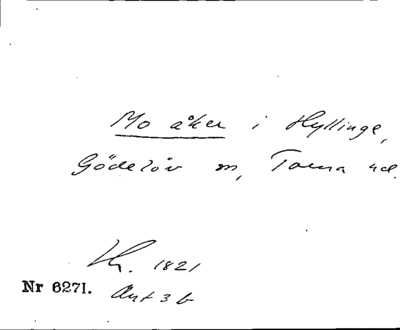 Mo åker i Hyllinge,
Gödelöv sn, Torna hd.
Kh. 1821
Nr 6271. Akt 3 b